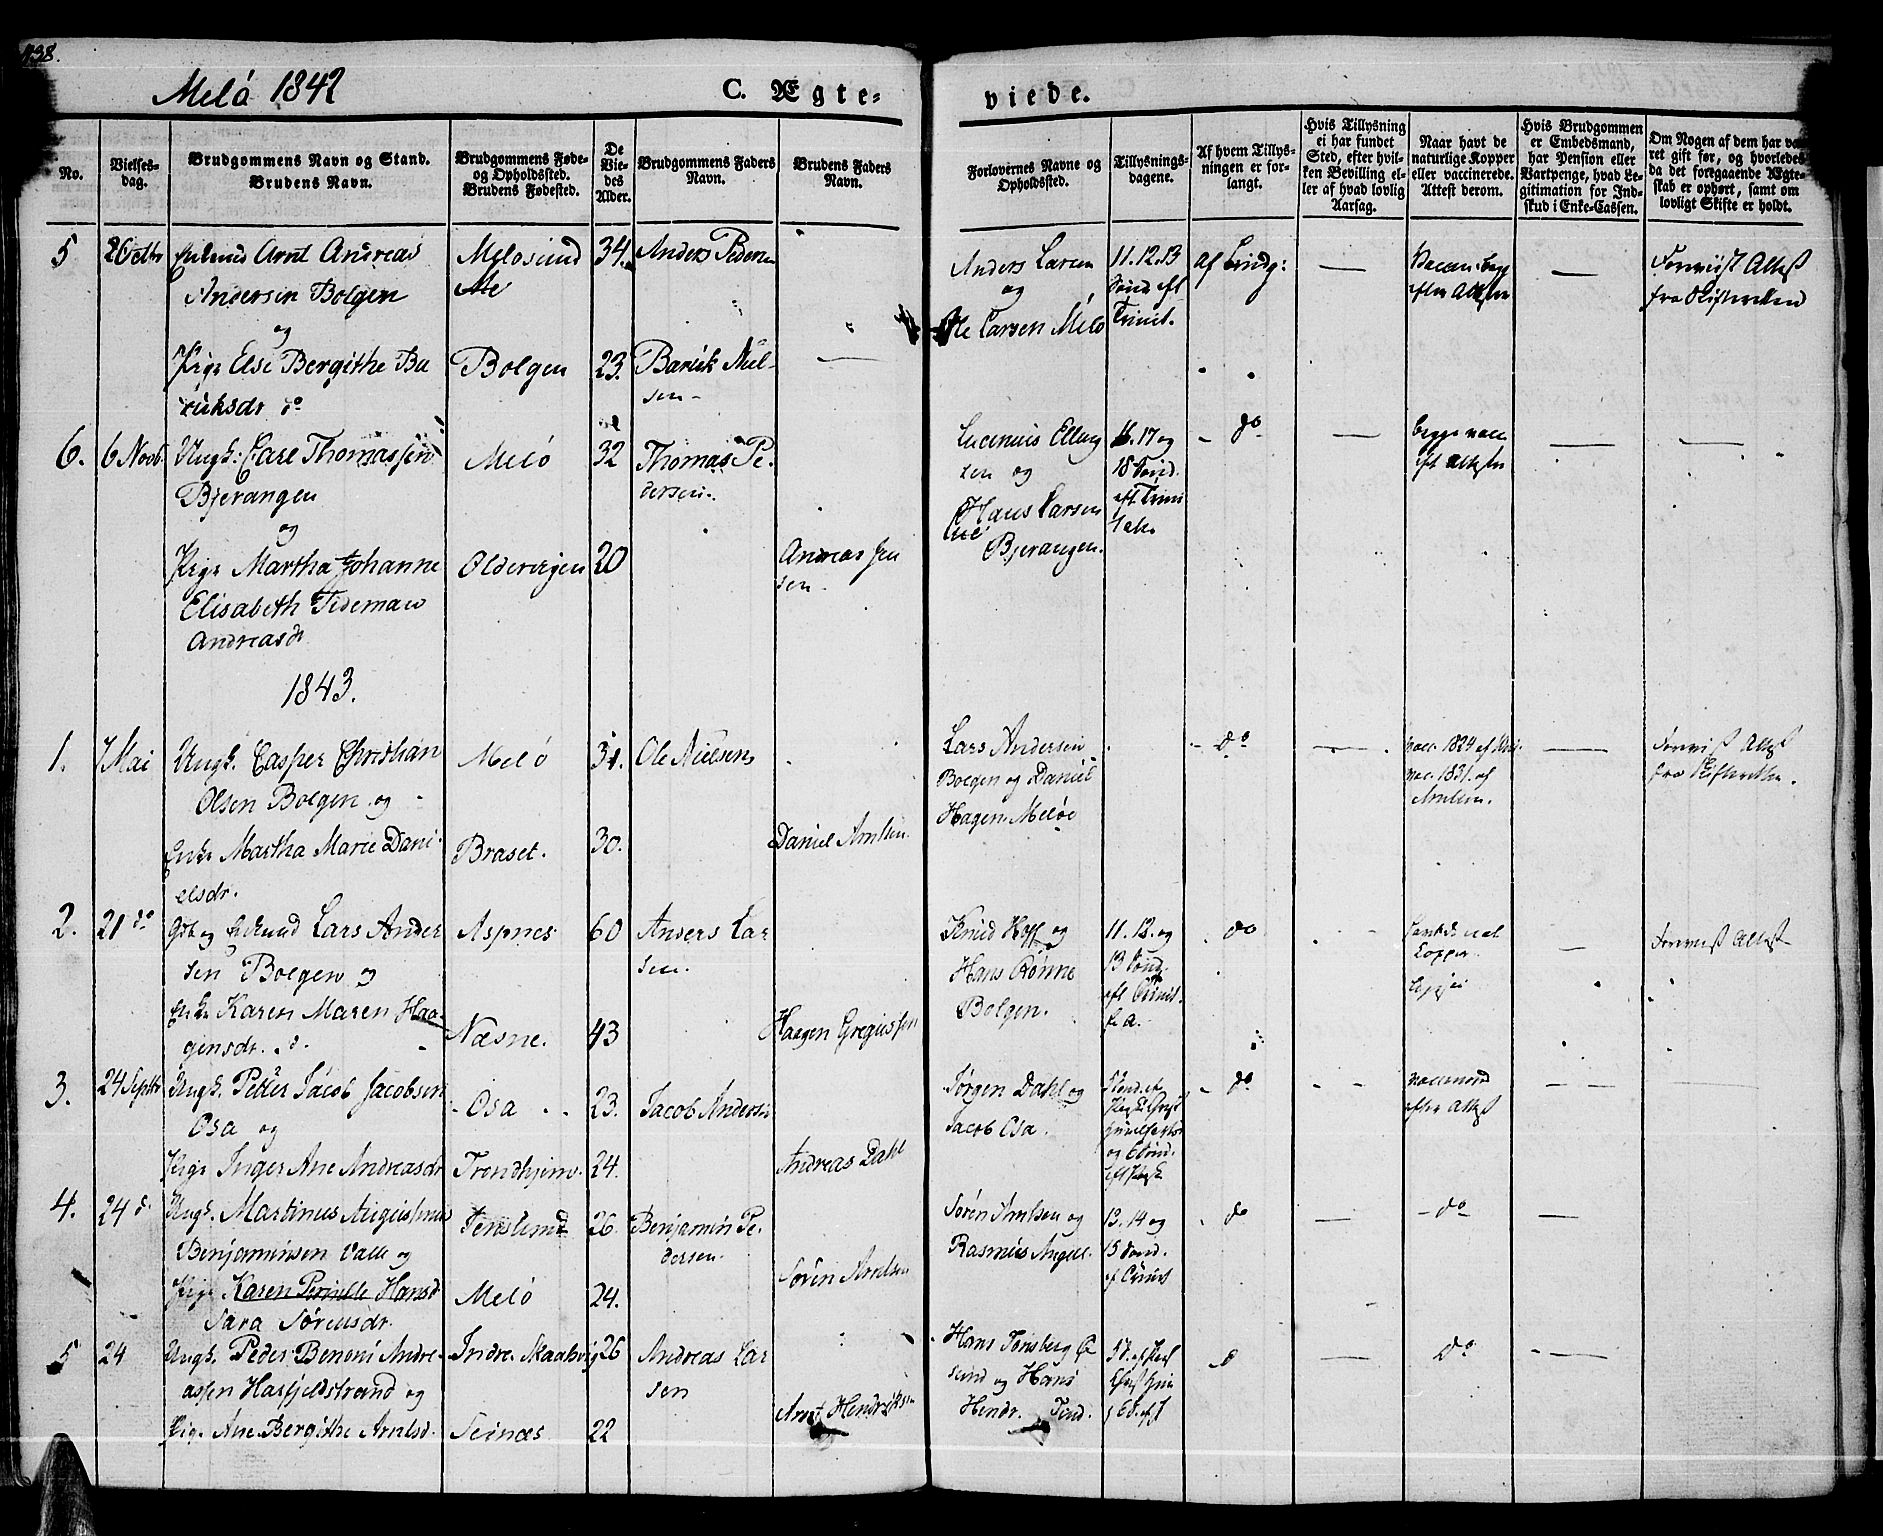 438.
Melö 1842
C. Ægte-
viede.
No.
Vielses-
dag.
Brudgommens Navn og Stand.
Brudens Navn.
Brudgommens Føde-
og Opholdssted.
Brudens Fødested.
De
Vie-
des
Alder.
Brudgommens Faders
Navn.
Brudens Faders
Navn.
Forlovernes Navne og
Opholdssted.
Tillysnings-
dagene.
Af hvem Tillys-
ningen er for-
langt.
Hvis Tillysning
ei har fundet
Sted, efter hvil-
ken Bevilling el-
ler af hvad lovlig
Aarsag.
Naar havt de
naturlige Kopper
eller vaccinerede.
Attest derom.
Hvis Brudgommen
er Embedsmand,
har Pension eller
Vartpenge, hvad Le-
gitimation for Ind-
skud i Enke-Cassen.
Om Nogen af dem har væ-
ret gift før, og hvorledes
da det foregaaende Ægte-
skab er ophørt, samt om
lovligt Skifte er holdt.
5
Arnt Andreas
Andersen Bolgen
og
Pige Else Bergithe Ba
ruksdr do
Melösund
Bolgen
34.
23.
Anders Peders
Baruk Niel-
sen-
Anders Larsen
og
Ole Larsen Melö
11.12.13
Sönd eft
Trinit.
af Brudg:
efter Attester
Forviist Attest
fra Skifteretten
6.
6 Novb.
Ungk: Carl Thomassen
Bjerangen
og
Pige Martha Johanne
Elisabeth Tideman
Andreasdr
Melö
32
20
Thomas Pe-
dersen.
Andreas Jen
sen.
Ellings
sen og
Hans Larsen
Bjerangen.
16.17 og
18 Sönd.
eft Trini
do
begge vacc
eft Attester
1843.
1.
7 Mai
Ungk. Casper Christian
Olsen Bolgen og
Enke Martha Marie Dani-
elsdr.
Melö
Braset.
31.
30.
Ole Nielsen
Daniel Arntsen.
Lars Andersen
Bolgen og Daniel
Hagen Melöe
do
vacc. 1824 af
vac. 1831. af
Arntsen.
Forviist Attest
fra Skifteretten.
2.
21 do
Gbr og Enkemd Lars Ander
sen Bolgen og
Enke Karen Maren Haa-
gensdr. d.
Aspnes
Næsne.
60
43
Anders Lar
sen.
Haagen Gregiussen
Knud Hoff og
Hans Rönne
Bolgen.
11.12. og
13 Sönd.
eft Trinit.
do
Kopper.
Forviist Attest
3.
24 Septbr
Ungk. Petter Jacob Jacobsen
Osa og
Pige Inger Ane Andreasdr
Osa
Trondhjem.
23.
24.
Jacob Andersen
Andreas Dahl
Jörgen Dahl og
Jacob Osa.
do
efter Attest
4.
24 d.
Ungk. Martinus Augustinus
Benjaminsen Valle og
Pige Karen Pernille Hansd
Sara Sörensdr.
Melö
26.
24.
Benjamin Pe-
dersen.
Sören Arntsen
Sören Arntsen og
Rasmus Angell.
13.14 og
15 Sönd.
af Trinit
do
do
5
24
Ungk. Peder Benoni Andre-
assen Hasfjeldstrand og
Pige Ane Bergithe Arntsd.
Indre Skaalsvig
Seinæs
26
22
Andreas Lar
sen
Arnt Hendriksen
Hans Tonsberg Ø
sund og Hans
Hendr.
d
do